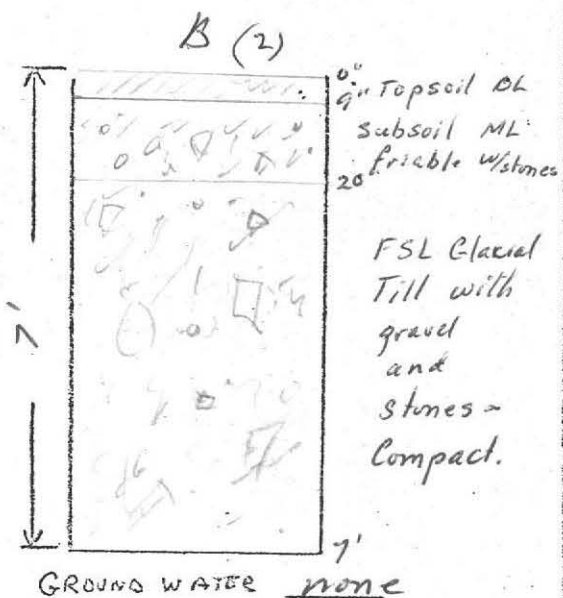 B (2)
0"
9" Topsoil OL
Subsoil ML
friable w/stones
20"
FSL Glacial
Till with
gravel
and
Stones -
Compact.
7'
7'
GROUND WATER none